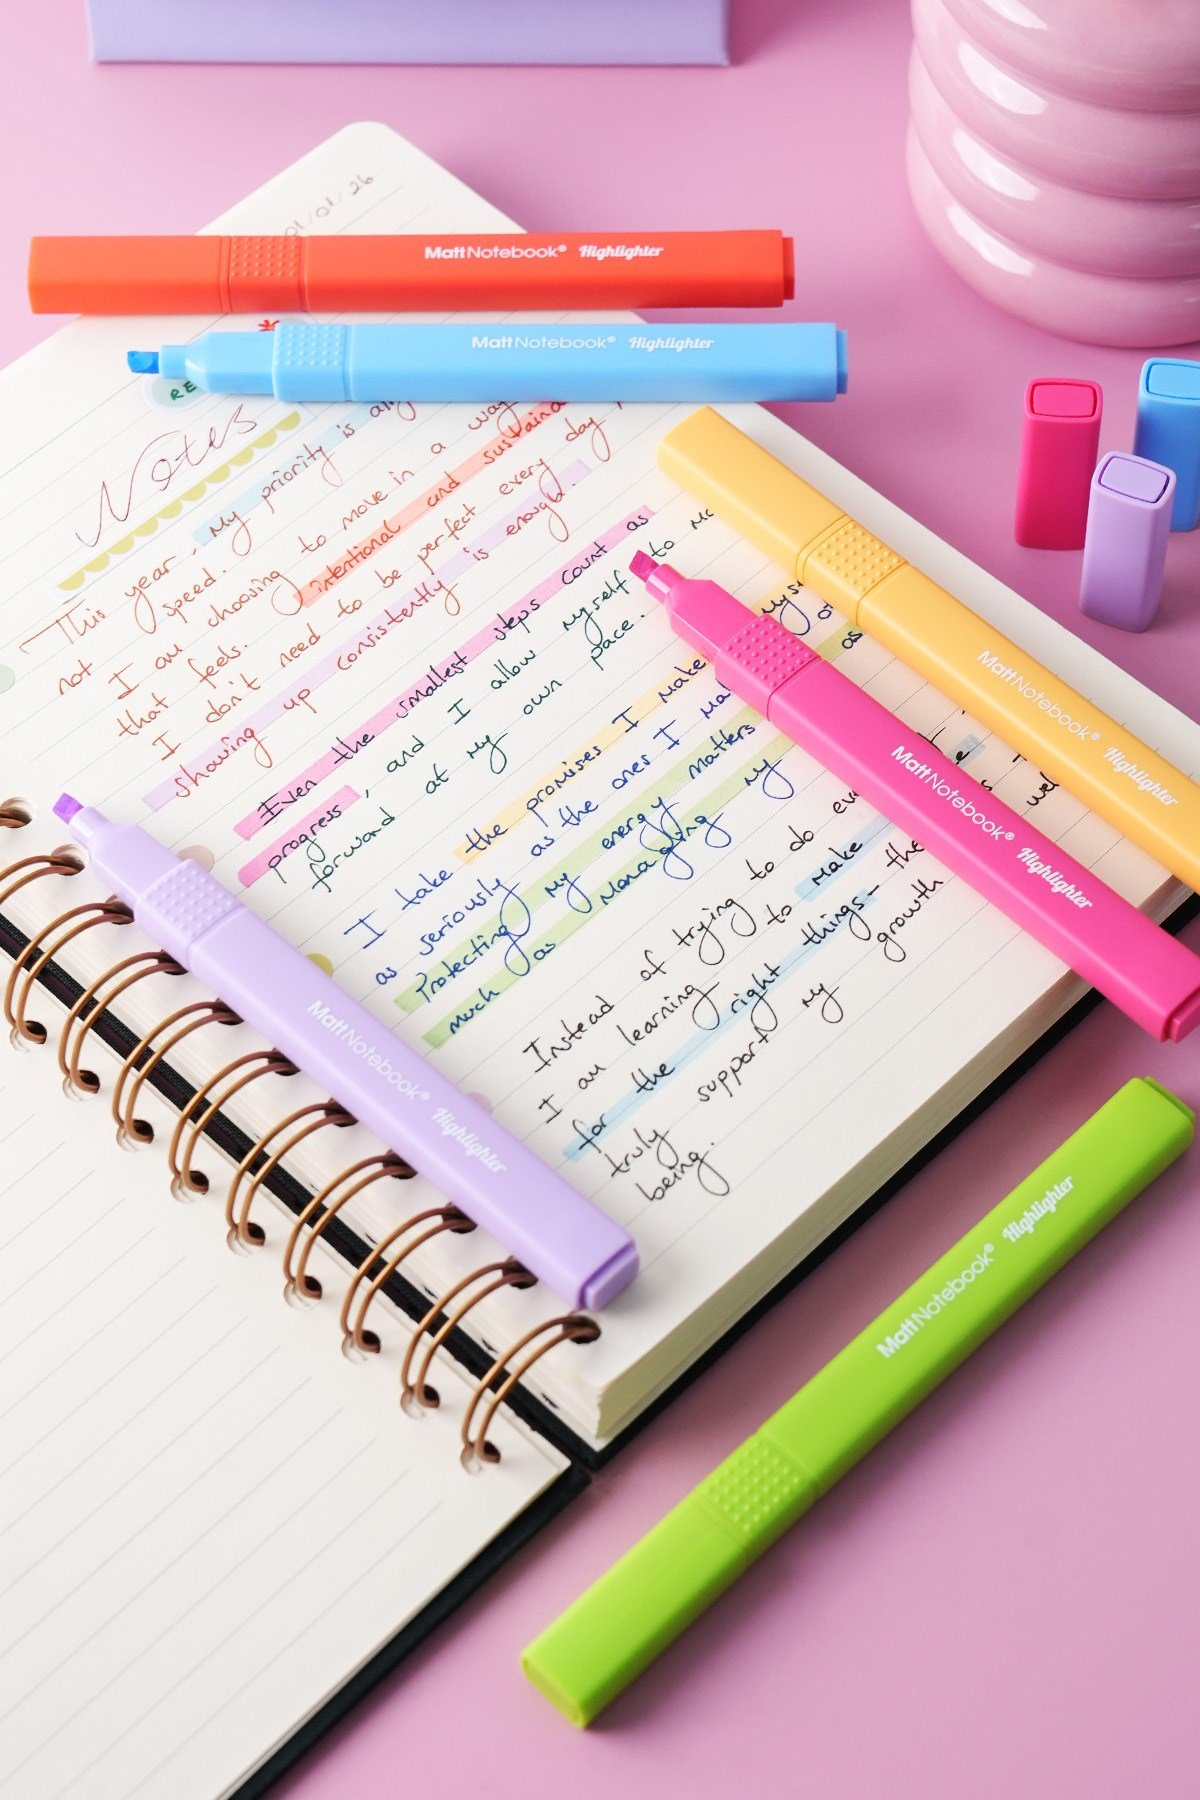 01/01/26
MattNotebook® Highlighter
MattNotebook® Highlighter
RE
Notes
This year, my priority is
not speed.
I am choosing to move in a way
that feels. intentional and
I don't need to be perfect every day
showing up consistently is enough.
Even the smallest steps count as
progress, and I allow myself to
forward at my own pace.
I take the promises I make
as seriously as the ones I
Protecting my energy matters as
much as managing my
Instead of trying to do
I am learning to make
for the right things- the
truly support my growth
being.
MattNotebook® Highlighter
MattNotebook® Highlighter
MattNotebook® Highlighter
MattNotebook® Highlighter